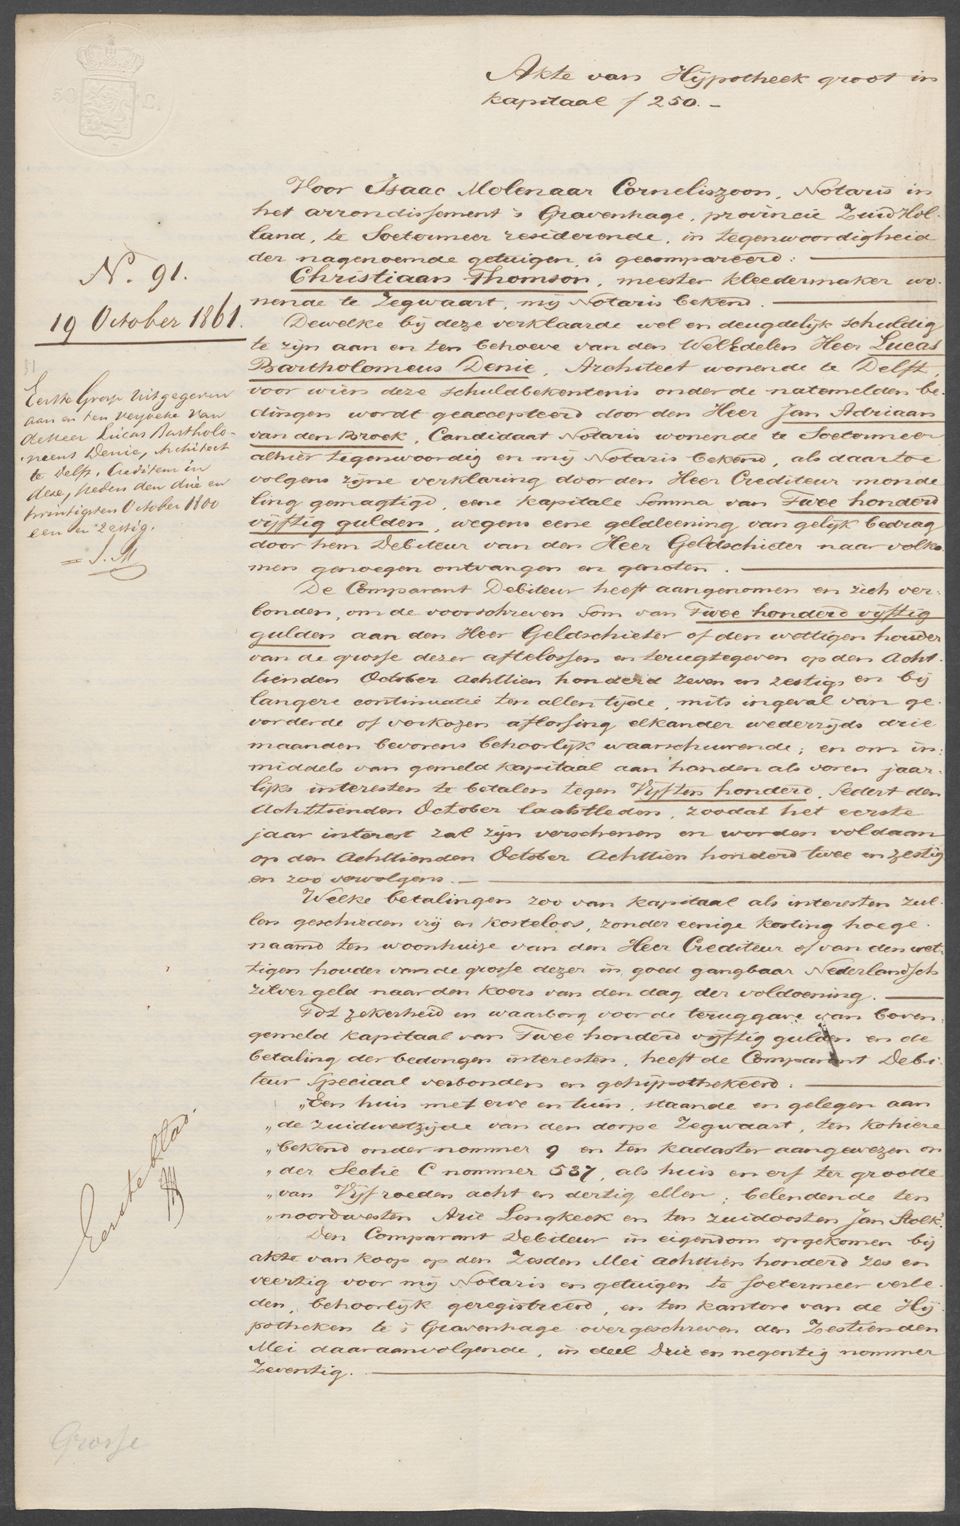 Akte van Hypotheek groot in
kapitaal f 250.-
Voor Isaac Molenaar Corneliszoon, Notaris in
het arrondissement 's Gravenhage, provincie Zuid Hol-
land, te Soetermeer residerende, in tegenwoordigheid
der nagenoemde getuigen, is gecompareerd:
Christiaan Thomson, meester kleedermaker wo-
nende te Zegwaart, mij Notaris bekend.
Dewelke bij deze verklaarde wel en deugdelijk schuldig
te zijn aan en ten behoeve van den WelEdelen Heer Lucas
Bartholomeus Denie, Architect wonende te Delft,
voor wien deze schuldbekentenis onder de natemelden be-
dingen wordt geaccepteerd door den Heer Jan Adriaan
van den Broek, Candidaat Notaris wonende te Soetermeer
alhier tegenwoordig en mij Notaris bekend, als daartoe
volgens zijne verklaring door den Heer Crediteur monde
ling gemagtigd, eene kapitale somma van Twee honderd
vijftig gulden, wegens eene geldleening van gelijk bedrag
door hem Debiteur van den Heer Geldschieter naar volko-
men genoegen ontvangen en genoten.
De Comparant Debiteur heeft aangenomen en zich ver-
bonden, om de voorschreven som van Twee honderd vijftig
gulden aan den Heer Geldschieter of den wettigen houder
van de grosse dezer aftelossen en terugtegeven op den Acht-
tienden October Achttien honderd zeven en zestig en bij
langere continuatie ten allen tijde, mits ingeval van ge-
vorderde of verkozen aflossing elkander wederzijds drie
maanden bevorens behoorlijk waarschuwende; en om in-
middels van gemeld kapitaal aan handen als voren jaar-
lijks interesten te betalen tegen Vijf ten honderd, sedert den
Achttienden October laatstleden, zoodat het eerste
jaar interest zal zijn verschenen en worden voldaan
op den Achttienden October Achttien honderd twee en zestig
en zoo vervolgens.
Welke betalingen zoo van kapitaal als interesten zul-
len geschieden vrij en kosteloos, zonder eenige korting hoege-
naamd ten woonhuize van den Heer Crediteur of van den wet-
tigen houder van de grosse dezer in goed gangbaar Nederlandsch
zilver geld naar den koers van den dag der voldoening.
Tot zekerheid en waarborg voor de teruggave van boven-
gemeld kapitaal van Twee honderd vijftig gulden en de
betaling der bedongen interesten, heeft de Comparant Debi-
teur speciaal verbonden en gehypothekeerd:
„Een huis met erve en tuin, staande en gelegen aan
„de zuidwestzijde van den dorpe Zegwaart, ten kohiere
„bekend onder nommer 9 en ten kadaster aangewezen on
„der Sectie C nommer 587, als huis en erf ter grootte
„van Vijf roeden acht en dertig ellen; belendende ten
„noordwesten Arie Lengkeek en ten zuidoosten Jan Stolk.
Den Comparant Debiteur in eigendom opgekomen bij
akte van koop op den Zesden Mei Achttien honderd zes en
veertig voor mij Notaris en getuigen te Soetermeer verle-
den, behoorlijk geregistreerd, en ten kantore van de Hy-
potheken te 's Gravenhage overgeschreven den Zestienden
Mei daaraanvolgende, in deel Drie en negentig nommer
Zeventig.
N. 91.
19 October 1861.
Eerste Gross uitgegeven
aan en ten verzoeke van
de Heer Lucas Bartholo-
meus Denie, Architect
te Delft, Crediteur in
deze, heden den drie en
twintigsten October 1800
een en zestig.
= J. M
Eerste blad.
Grosse